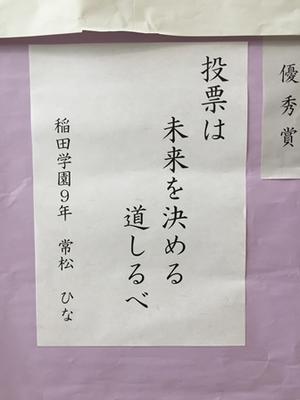 優秀賞
投票は
未来を決める
道しるべ
稲田学園９年　常松　ひな